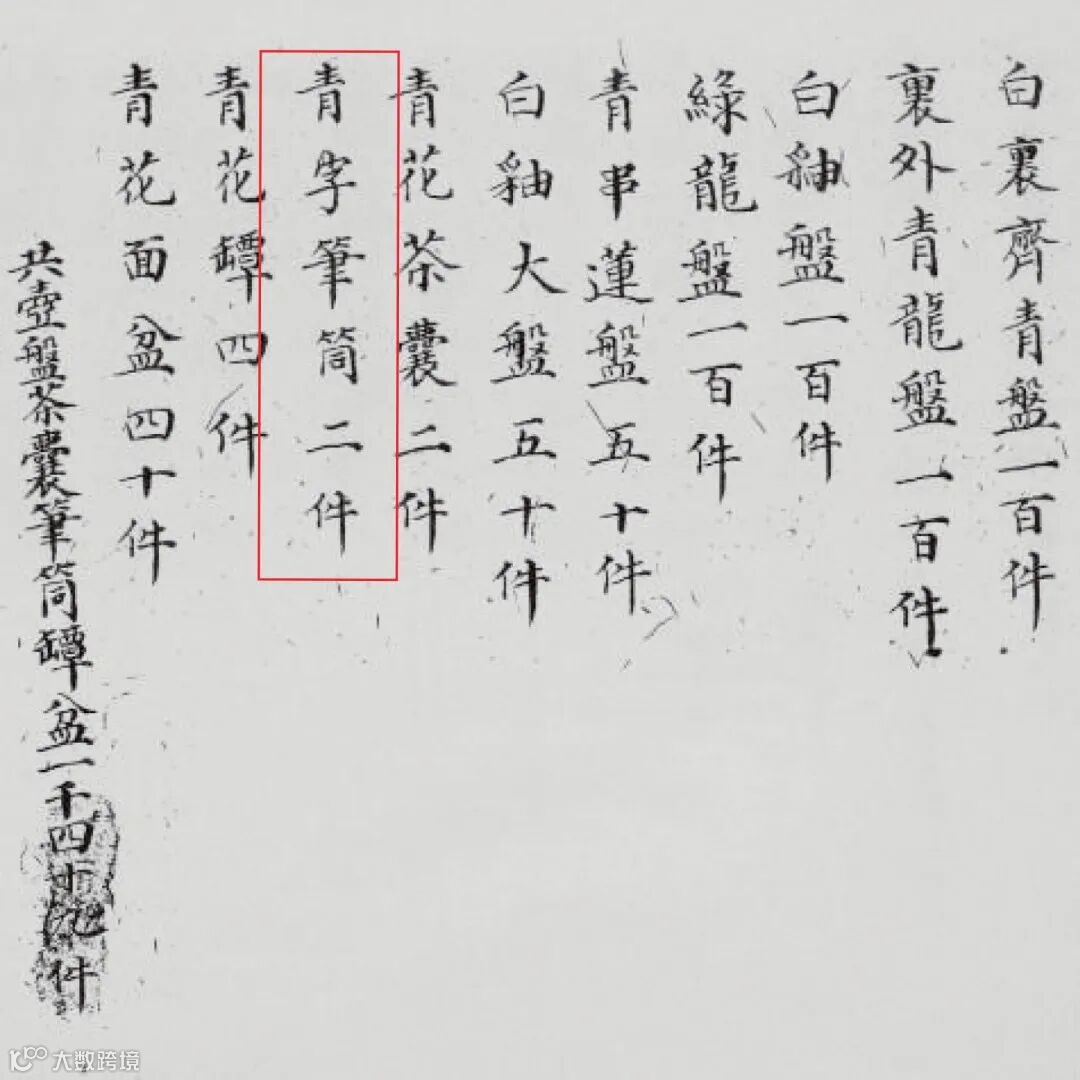 白裏齊青盤一百件
裏外青龍盤一百件
白釉盤一百件
綠龍盤一百件
青串蓮盤五十件
白釉大盤五十件
青花茶囊二件
青字筆筒二件
青花罈四件
青花面盆四十件
共壺盤茶囊筆筒罈盆一千四十件
大数跨境